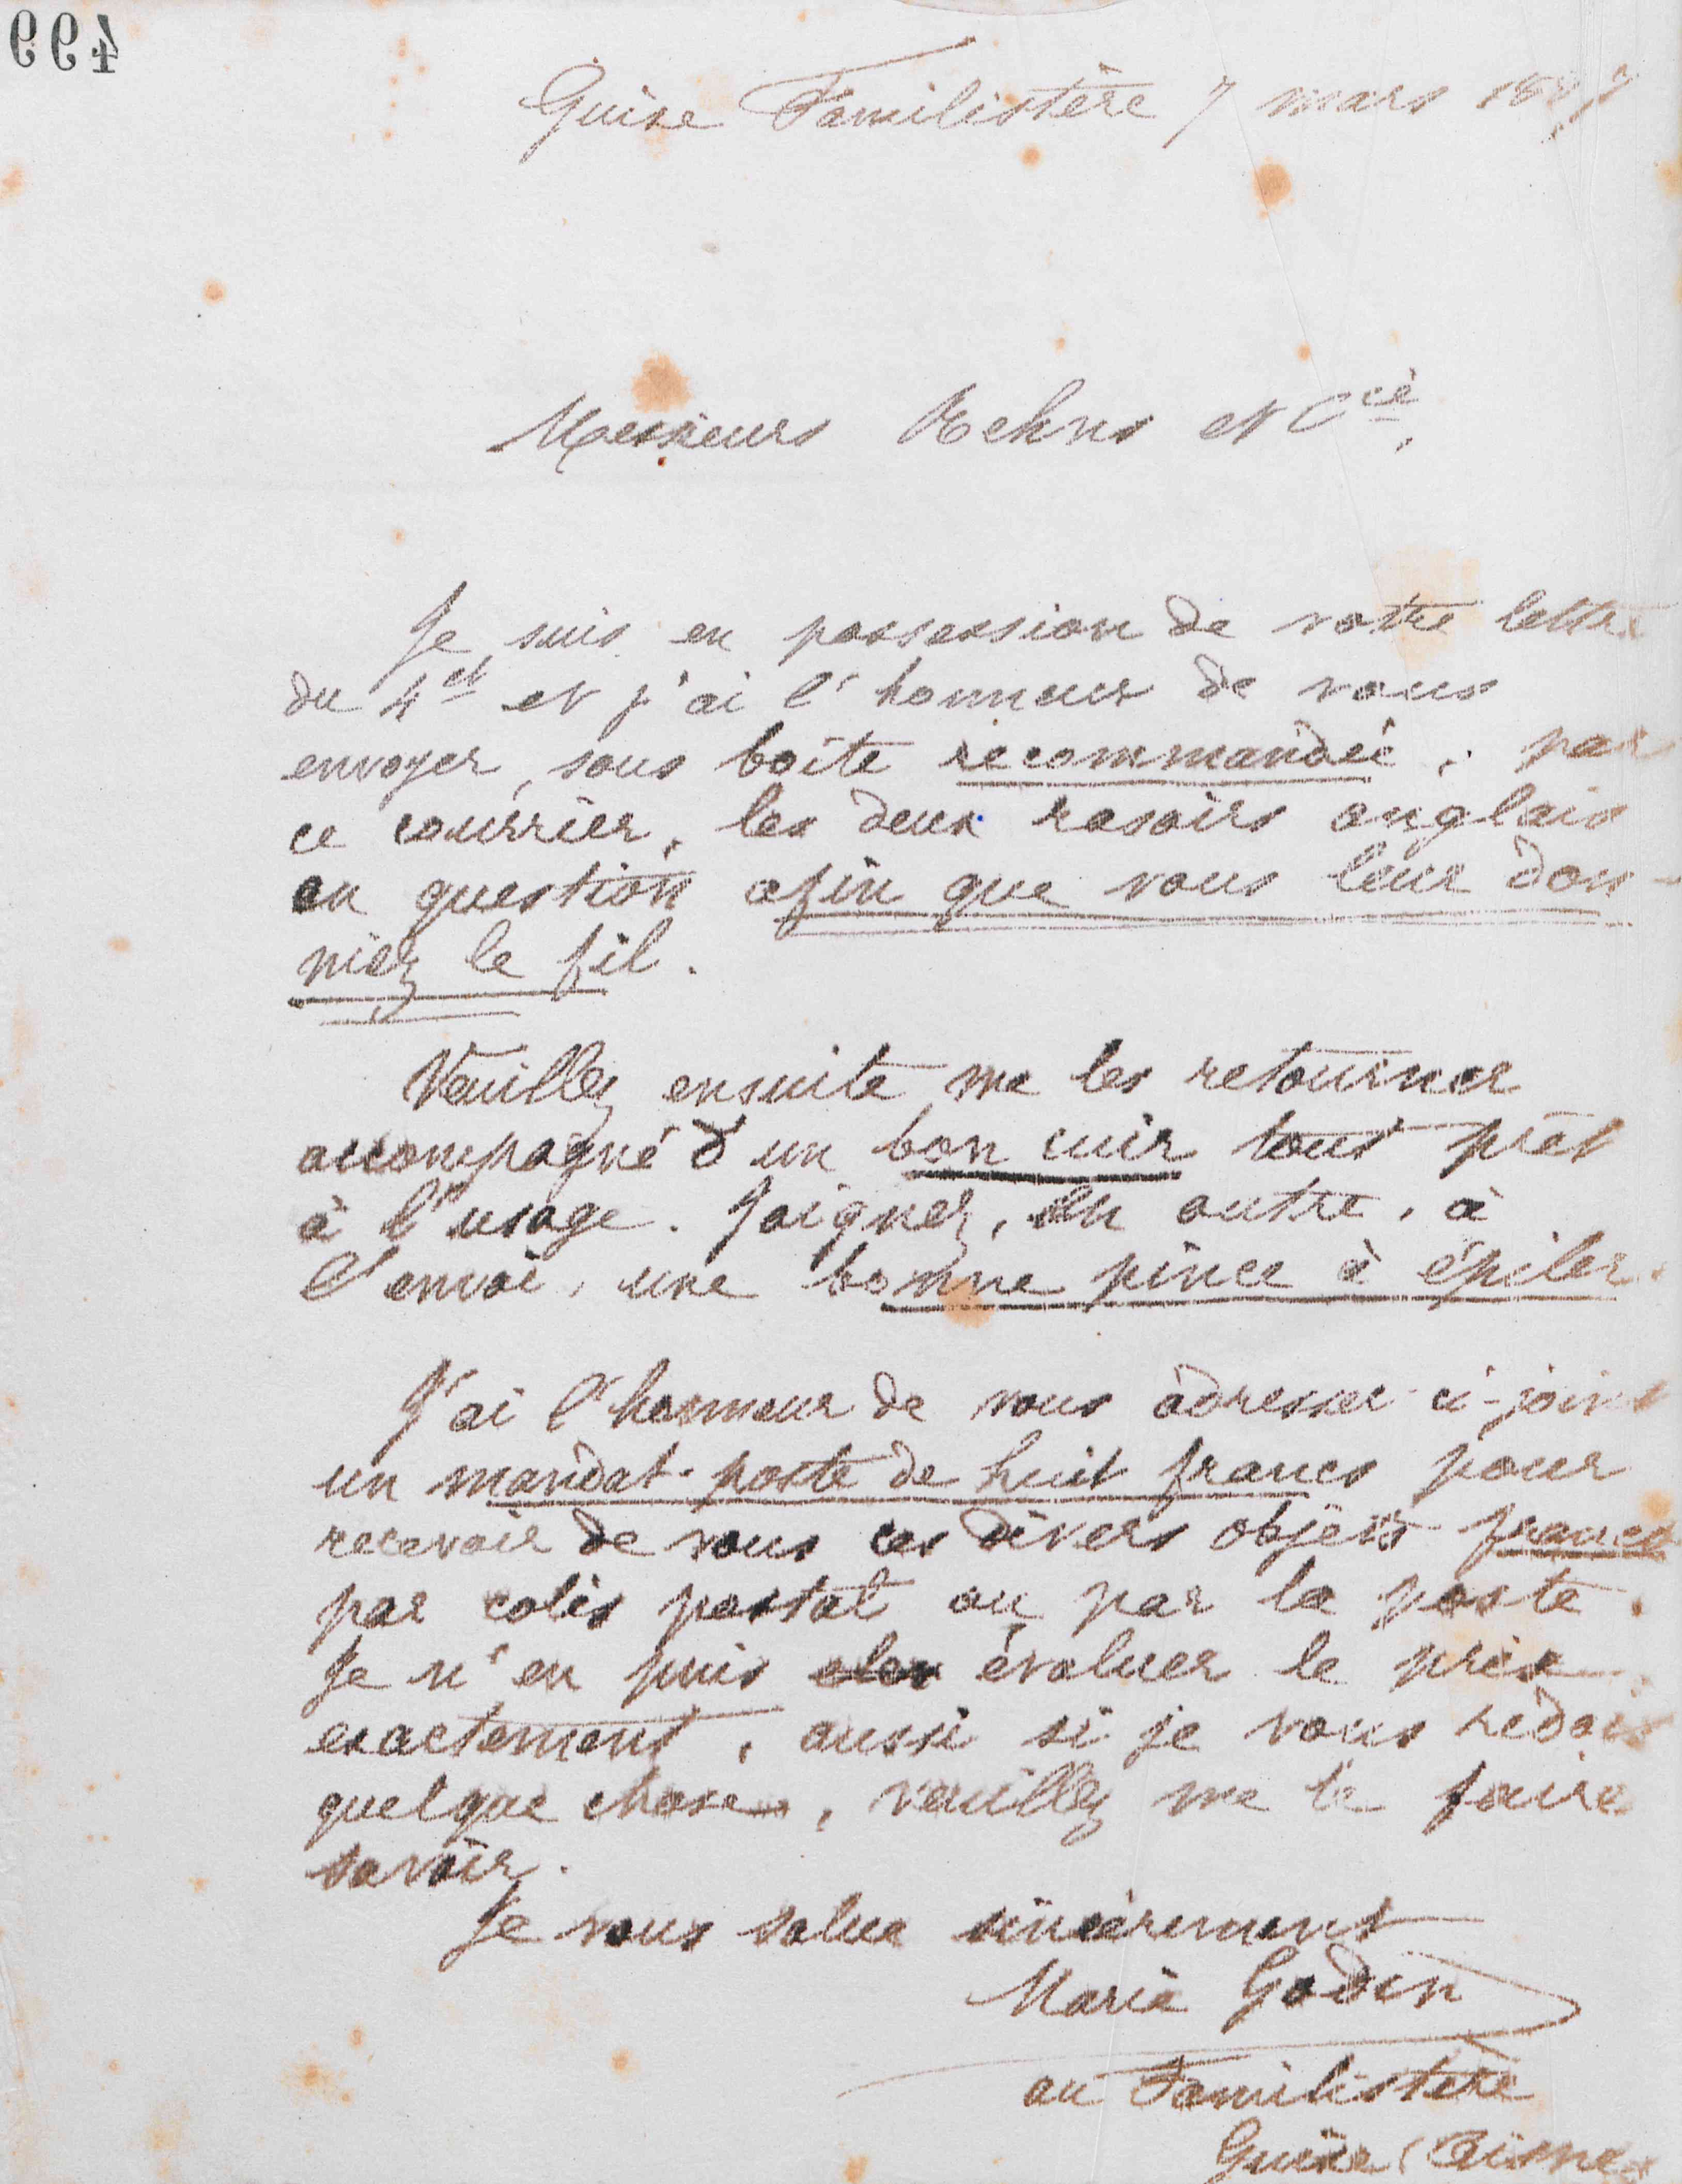 499
Guise Familistère 7 mars 18
Messieurs Rehns et Cie,
Je suis en possession de votre lettre
du 4 ct et j'ai l'honneur de vous
envoyer, sous boîte recommandée, par
ce courrier, les deux rasoirs anglais
en question afin que vous leur don-
niez le fil.
Veuillez ensuite me les retourner
accompagné d'un bon cuir tout prêt
à l'usage. Joignez, en outre, à
l'envoi, une bonne pince à épiler.
J'ai l'honneur de vous adresser ci-joint
un mandat-poste de huit francs pour
recevoir de vous ces divers objets franco
par colis postal ou par la poste.
Je n'en puis évaluer le prix
exactement, aussi si je vous redois
quelque chose, veuillez me le faire
savoir.
Je vous salue sincèrement
Marie Godin
au Familistère
Guise (Aisne)